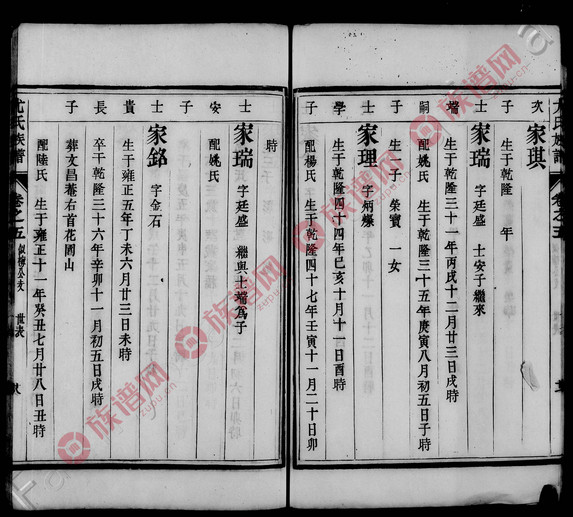 尤氏族譜
卷之五
世表
次
子
家琪
生于乾隆 年
士
瑞
嗣
家瑞 字廷盛 士安子繼來
生于乾隆三十一年丙戌十二月廿三日戌時
配姚氏 生于乾隆三十五年庚寅八月初五日子時
生一子 榮寶 一女
士
學
子
家理 字炳燦
生于乾隆四十四年己亥十月十一日酉時
配楊氏 生于乾隆四十七年壬寅十一月二十日卯
時
士
安
子
家瑞 字廷盛 繼與士端為子
配姚氏
士
貴
長
子
家銘 字金石
生于雍正五年丁未六月廿三日未時
卒于乾隆三十六年辛卯十一月初五日戌時
葬文昌菴右首花園山
配陸氏 生于雍正十一年癸丑七月廿八日丑時
尤氏族譜
卷之五
世表
族谱网
zupu.cn
族谱网
zupu.cn
族谱网
zupu.cn
族谱网
zupu.cn